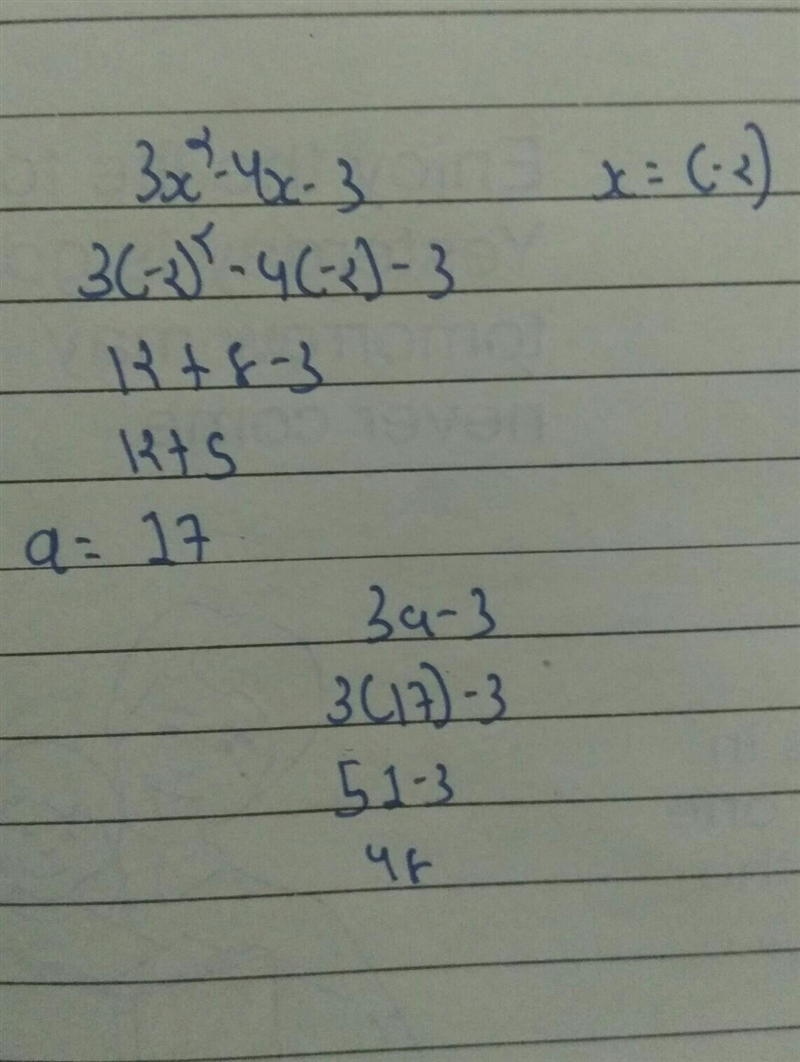 3x²-4x-3 x = (-2)
3(-2)² - 4(-2) - 3
12 + 8 - 3
12 + 5
a = 17
3a - 3
3(17) - 3
51 - 3
48